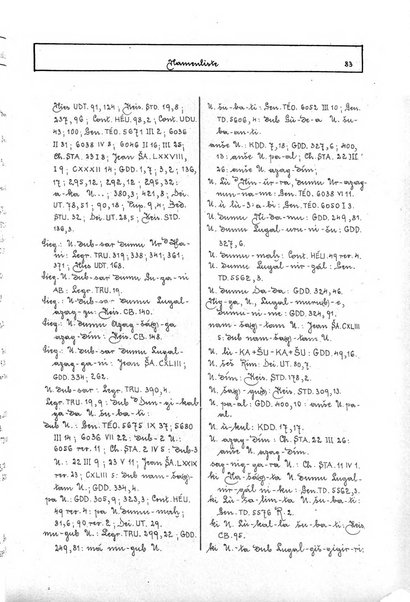 Namenliste 83
Nies UDT. 91, 124; Reis. STD. 19, 8;
237, 96; Cont. HÉU. 98, 2; Cont. UDU.
43; 100; Gen. TÉO. 5671 III 2; 6036
II 31; 6038 IV 3; 6046 II 16; III 25;
Ch. STA. 23 I 8; Jean ŠA. LXXVIII,
19; CXXXII 14; GDD. 1, 7; 3, 2; 136,
17; 295, 12; 292, 12; 295, 32:
a-ka N...; 380, 3; 421, 8; Dei.
UT. 78, 51; 90, 18; Orp. 9, 4; Bed.
STU. 32; Dei. UT. 28, 5; Reis. STD.
136, 3.
Sieg.: N. dub-sar dumu Ur ᵈHa-
ni: Legr. TRU. 319; 338; 341; 361;
371; Nies UDT. 163.
Sieg.: N. dub-sar dumu Lu-ga-ni
AB: Legr. TRU. 19.
Sieg.: N. dub-sar dumu Lugal-
azag-zu: Reis. CB. 140.
Sieg.: N. dumu Azag-šag-ga
azag-dím: Reis. CB. 148.
Sieg.: N. dub-sar dumu Lugal-
azag-ga-ni: Jean ŠA. CXLIII;
GDD. 334; 262.
N. dub-sar dumu: Legr. TRU. 390, 4.
Legr. TRU. 19, 9: dub ᵈSun-gi-kal-
ga-da N. šu-ba-ti:
dub N.: Gen. TÉO. 5675 IX 37; 5680
III 14; 6036 VII 22: dub-2 N.:
6056 rer. 11; Ch. STA. 2 IV 5: dub-3
N.: 22 III 9; 23 V 11; Jean ŠA. LXXIX
rer. 23; CXLIII 5: dub nam-šag-
tam N.; GDD. 334, 4.
pa N.: GDD. 305, 9; 323, 3; Cont. HÉU.
49 rer. 4: pa N. dumu-mah;
31, 6; 90 rer. 2; Dei. UT. 29.
mu-gub N.: Legr. TRU. 299, 22; GDD.
249, 81: má mu-gub N.
N. šu-ba-ti: Gen. TÉO. 6052 III 10; Gen.
TD. 5606, 4: dub Lù-de-a N. šu-
ba-an-ti.
anše N.: KDD. 7, 18; GDD. 327, 6; 400,
13: anše N. pa-al; Ch. STA. 22 III
26: anše N. azag-dím;
N. Lù ᵈNin-ùr-ra, dumu Ur-azag-
nun-na-me: Gen. TÉO. 6038 VI 11.
N. ù Lù-3-a-bi: Gen. TÉO. 6050 I 3.
N. dumu Ni-da-mu: GDD. 249, 81.
N. dumu Lugal-uru-ni-šu: GDD.
327, 6.
N. dumu-mah: Cont. HÉU. 49 rer. 4.
N. dumu Lugal-nir-gál: Gen. TD.
5562, 3.
N. dumu Da-da: GDD. 324, 46.
Nig-ga, N., Lugal-murub₄-e,
dumu-ni-me: GDD. 324, 91.
nam-šag-tam N.: Jean ŠA. CXLIII
5: dub nam-šag-tam N.
N. lù-KA+ŠU-KA+ŠU: GDD. 49, 16.
N. šeš Kim: Dei. UT. 80, 7.
N. dím: Reis. STD. 178, 2.
N. šag-gud: Reis. STD. 309, 13.
N. pa-al: GDD. 400, 10: anše N. pa-
al.
N. ù-kul: KDD. 17, 17.
N. azag-dím: Ch. STA. 22 III 26:
anše N. azag-dím.
sag-nig-ga-ra N.: Ch. STA. 11 IV 1.
ki Na-šag-ta N. dumu Lugal-
nir-gál ni-ku: Gen. TD. 5562, 3.
ki Lù-ša-lim-ta N. šu-ba-ti:
Gen. TD. 5576 R. 2.
ki N. Lù-kal-la šu-ba-ti: Reis.
CB. 95.
ki N.-ta dub Lugal-giš-gigir-ri: